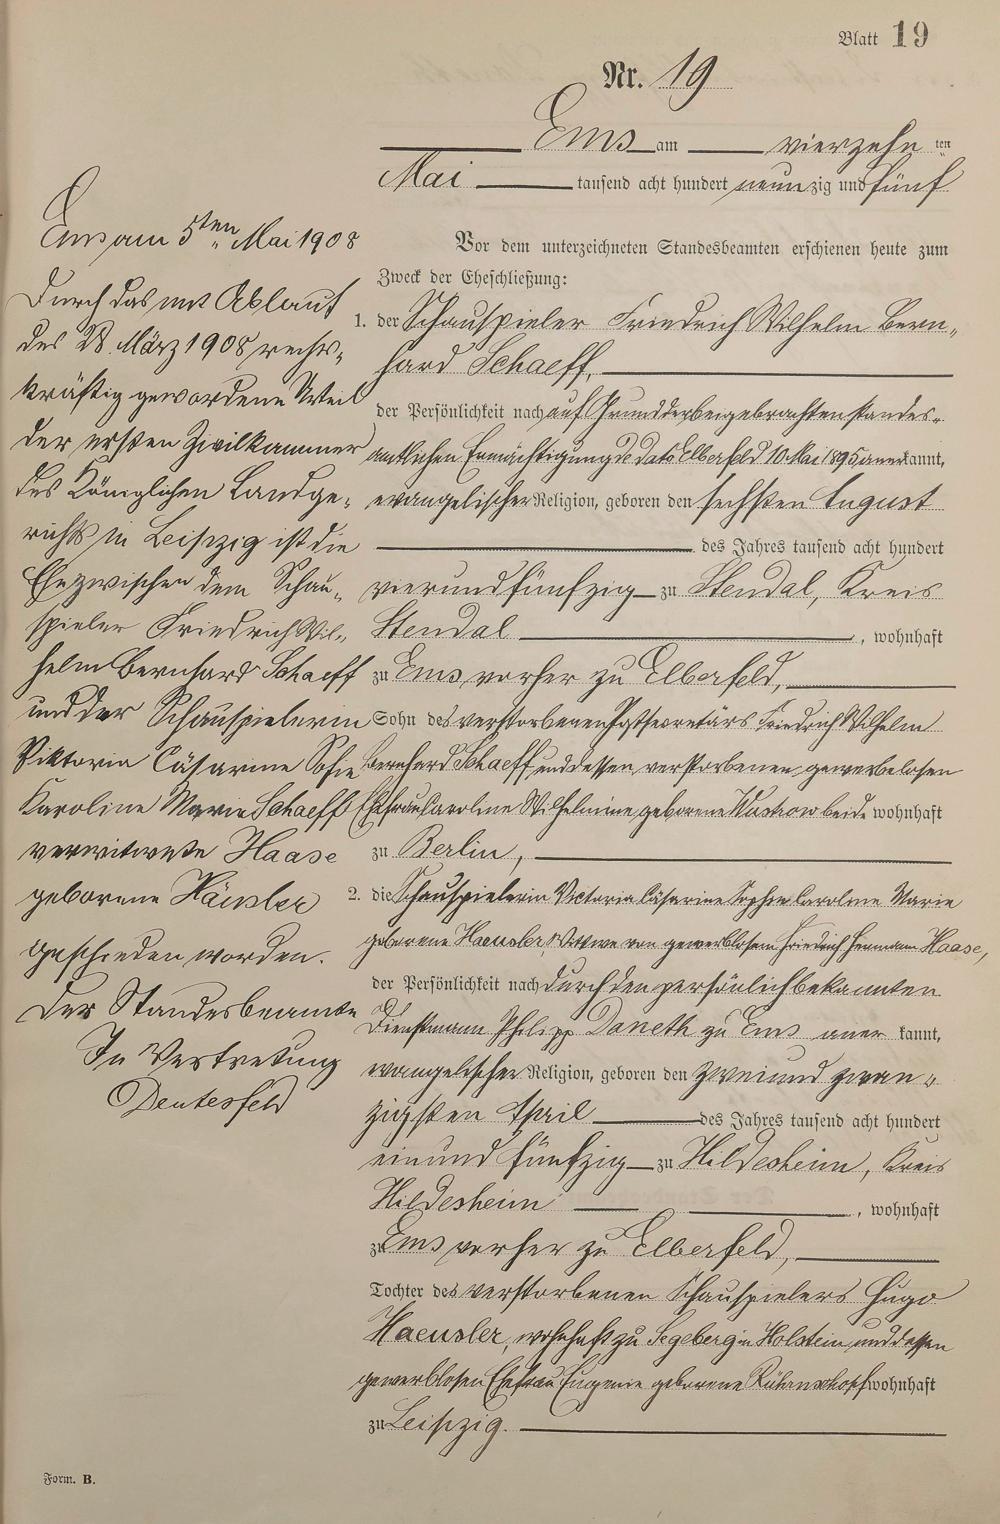 Blatt 19
Nr. 19
Ems am vierzehn ten
Mai tausend acht hundert neunzig und fünf
Vor dem unterzeichneten Standesbeamten erschienen heute zum
Zweck der Eheschließung:
1. der Schauspieler Friedrich Wilhelm Bern-
hard Schaeff,
der Persönlichkeit nach auf Grund der beigebrachten standes-
amtlichen Ermächtigung de dato Elberfeld 10. Mai 1895 anerkannt,
evangelischer Religion, geboren den sechsten August
des Jahres tausend acht hundert
vierundfünfzig zu Stendal, Kreis
Stendal, wohnhaft
zu Ems vorher zu Elberfeld,
Sohn des verstorbenen Postsecretärs Friedrich Wilhelm
Bernhard Schaeff, und dessen verstorbenen gewerbelosen
Ehefrau Caroline Wilhelmine geborene Wustrow beide wohnhaft
zu Berlin,
2. die Schauspielerin Victoria Cäsarine Sophie Caroline Marie
geborene Haeusler, Wittwe von gewerblosem Friedrich Hermann Haase,
der Persönlichkeit nach durch den persönlich bekannten
Dienstmann Philipp Daneth zu Ems anerkannt,
evangelischer Religion, geboren den zweiund zwan-
zigsten April des Jahres tausend acht hundert
einund fünfzig zu Hildesheim, Kreis
Hildesheim, wohnhaft
zu Ems vorher zu Elberfeld,
Tochter des verstorbenen Schauspielers Hugo
Haeusler, wohnhaft zu Segeberg in Holstein und dessen
gewerblosen Ehefrau Eugenie geborene wohnhaft
zu Leipzig.
Ems am 5ten Mai 1908
Durch das mit Ablauf
des 28. März 1908 rechts-
kräftig gewordene Urteil
der ersten Zivilkammer
des Königlichen Landge-
richts in Leipzig ist die
Ehe zwischen dem Schau-
spieler Friedrich Wil-
helm Bernhard Schaeff
und der Schauspielerin
Viktoria Cäsarine Sofie
Karoline Marie Schaeff
verwitwete Haase
geborene Häusler
geschieden worden.
Der Standesbeamte
In Vertretung
Deutesfeld
Form. B.